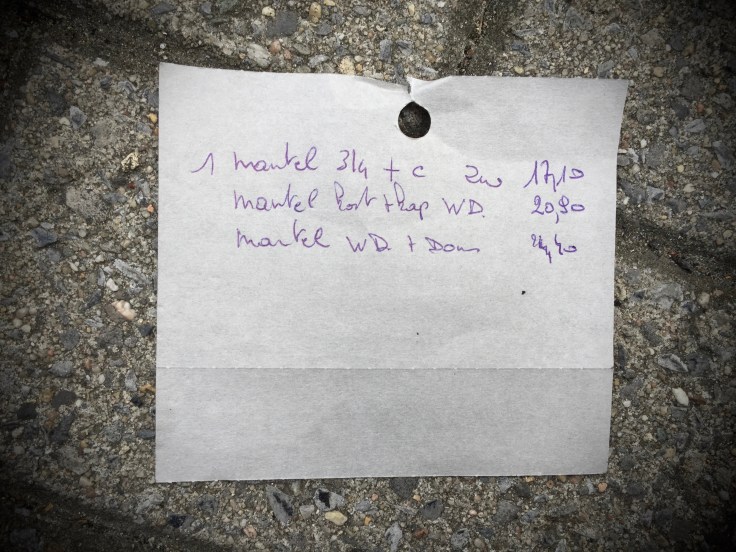 1 mantel 3/4 + c zw 17,10
mantel kort + kap WD. 20,90
mantel WD. + Dons